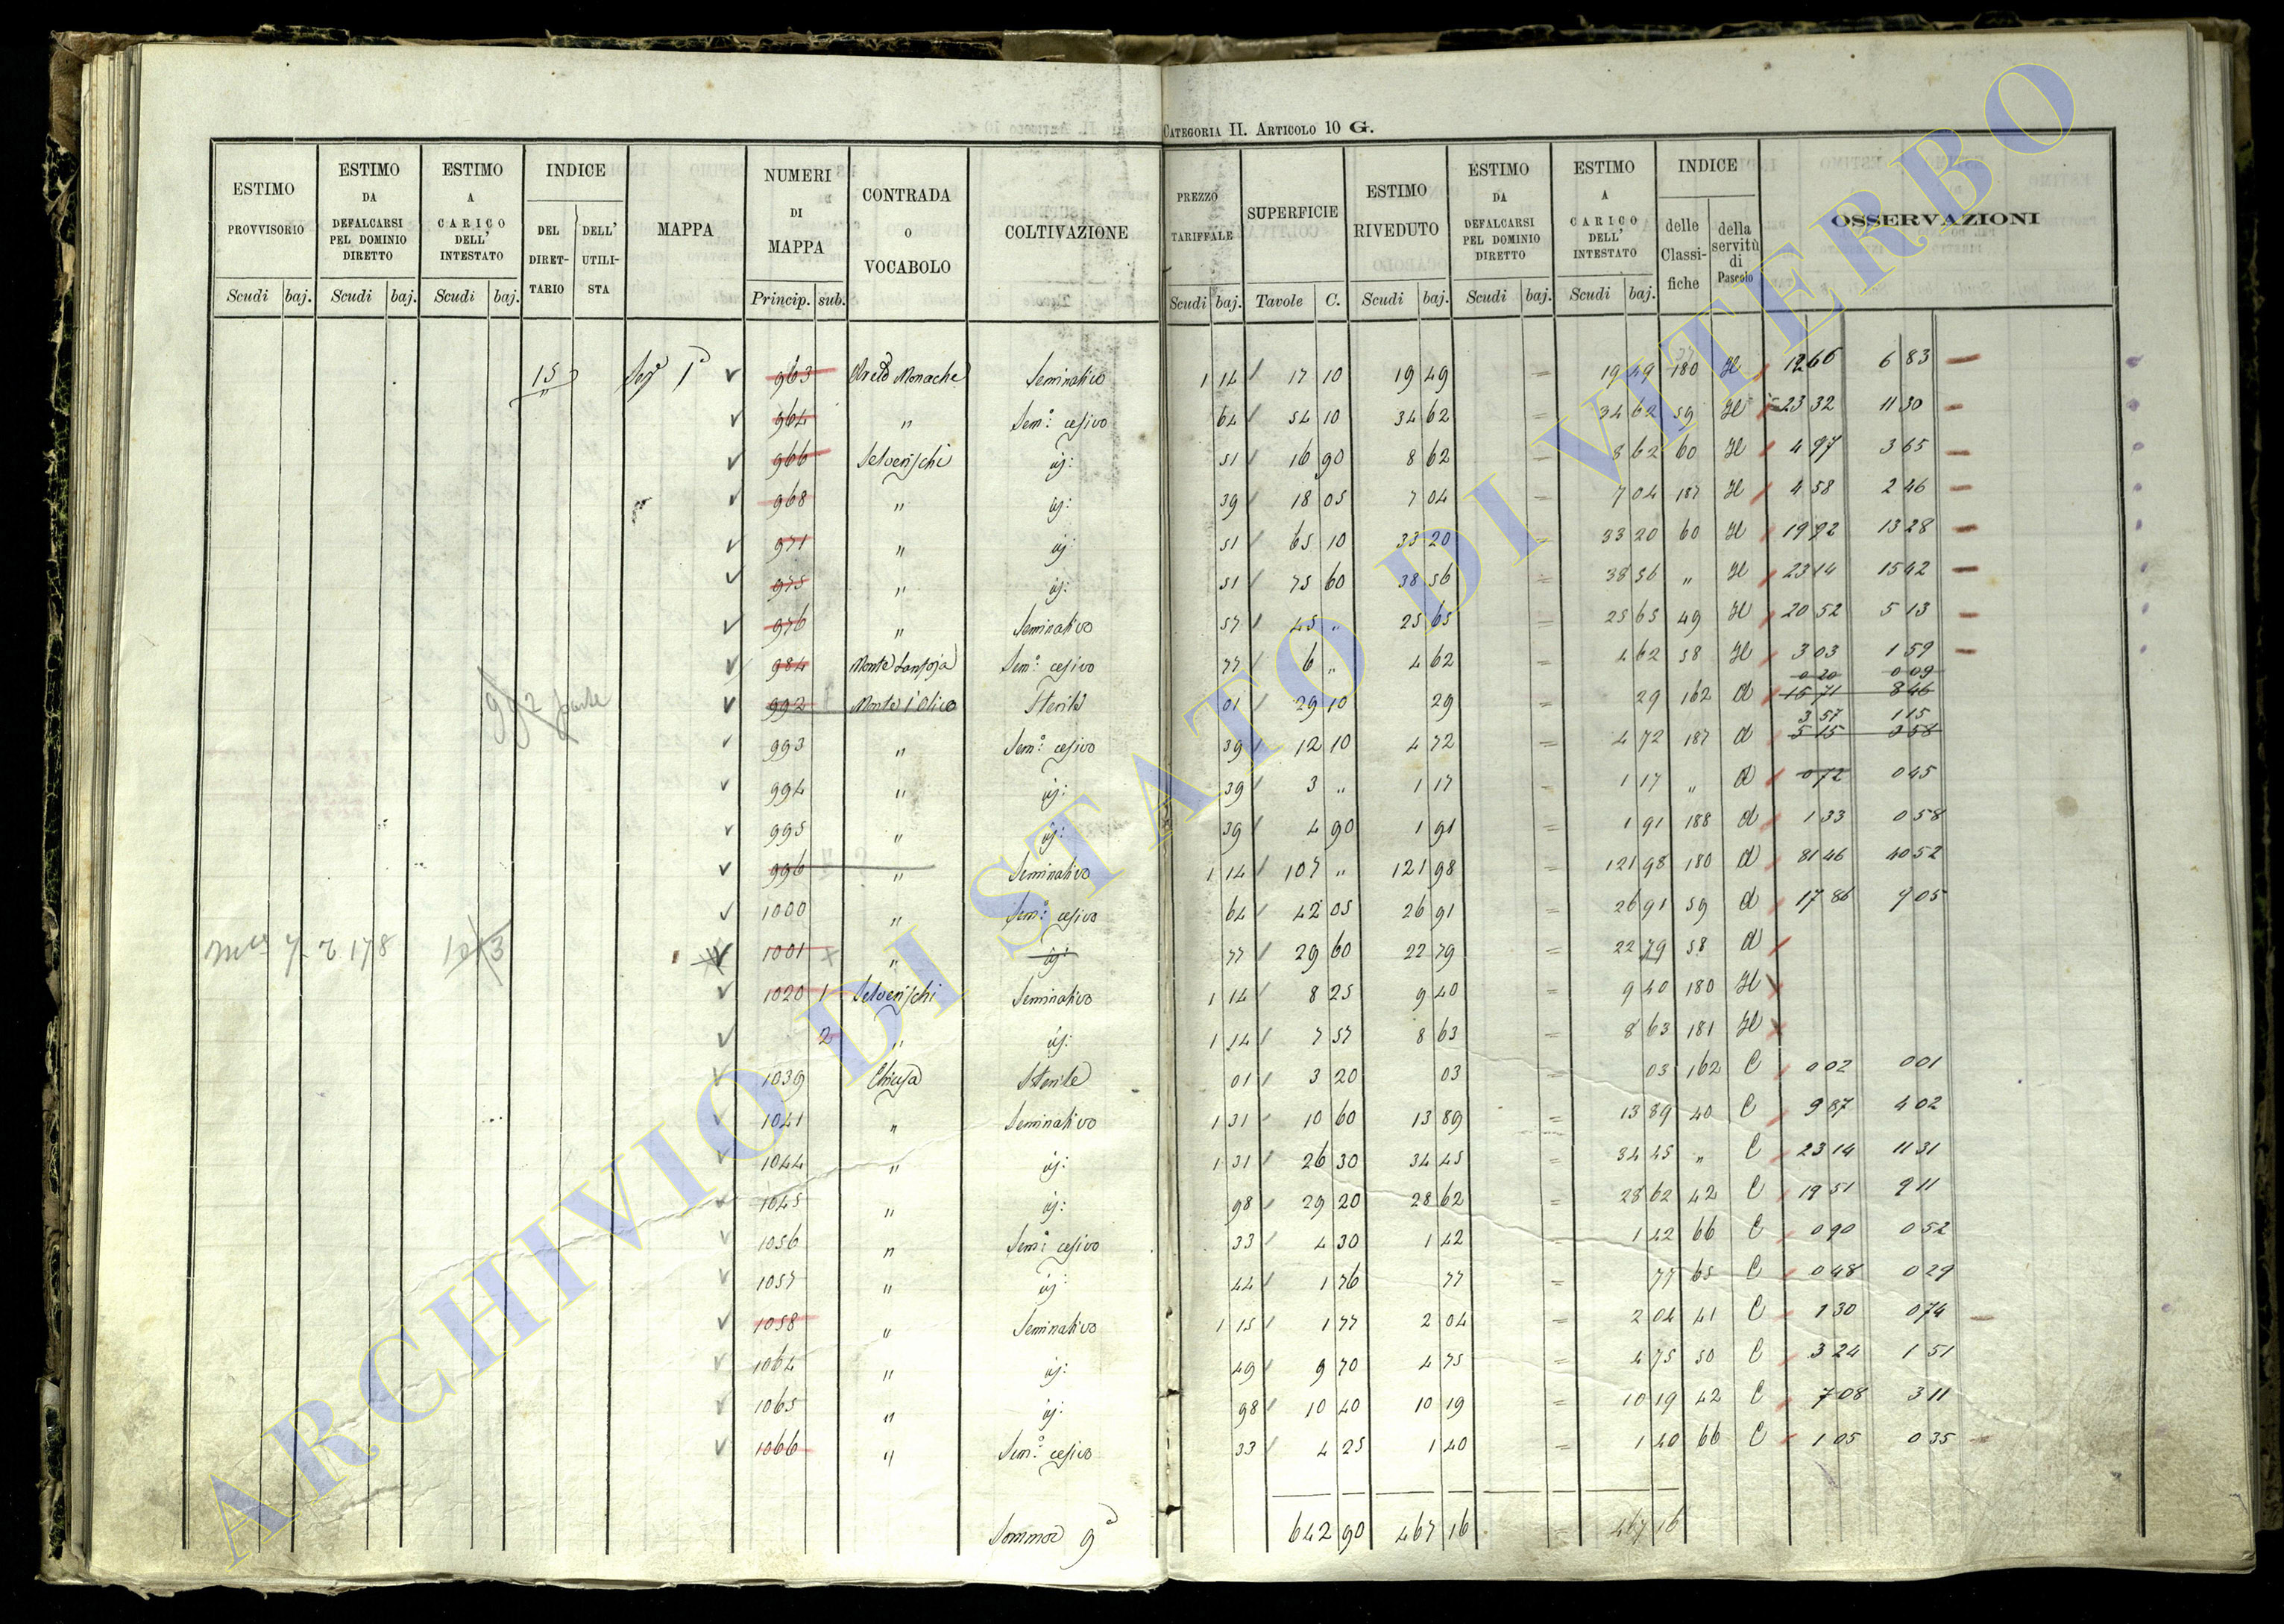 CATEGORIA II. ARTICOLO 10 G.
ESTIMO PROVVISORIO Scudi baj.
ESTIMO DA DEFALCARSI PEL DOMINIO DIRETTO Scudi baj.
ESTIMO A CARICO DELL' INTESTATO Scudi baj.
INDICE DEL DIRETTARIO DELL' UTILISTA
MAPPA
NUMERI DI MAPPA Princip. sub.
CONTRADA O VOCABOLO
COLTIVAZIONE
PREZZO TARIFFALE Scudi baj.
SUPERFICIE Tavole C.
ESTIMO RIVEDUTO Scudi baj.
ESTIMO DA DEFALCARSI PEL DOMINIO DIRETTO Scudi baj.
ESTIMO A CARICO DELL' INTESTATO Scudi baj.
INDICE delle Classifiche della servitù di Pascolo
OSSERVAZIONI
15 963 Monache Seminativo 1 14 17 10 19 49 = 19 49 180 H 12 66 6 83
964 " Sem: cesivo 64 54 10 34 62 = 34 62 59 H 23 32 11 30
966 Selverischi ij: 51 16 90 8 62 = 8 62 60 H 4 97 3 65
968 " ij: 39 18 05 7 04 = 7 04 187 H 4 58 2 46
971 " ij: 51 65 10 33 20 = 33 20 60 H 19 92 13 28
975 " ij: 51 75 60 38 56 = 38 56 " H 23 14 15 42
976 " Seminativo 57 45 " 25 65 = 25 65 49 H 20 52 5 13
984 Monte Sem: cesivo 77 6 " 4 62 = 4 62 58 H 3 03 1 59
0 20 0 09
992 parte 992 Monte l'Olivo Sterile 01 29 10 29 = 29 162 d 15 71 8 46
3 57 1 15
993 " Sem: cesivo 39 12 10 4 72 = 4 72 187 d 5 15 3 58
994 " ij: 39 3 " 1 17 = 1 17 " d 0 72 0 45
995 " ij: 39 4 90 1 91 = 1 91 188 d 1 33 0 58
996 " Seminativo 1 14 107 " 121 98 = 121 98 180 d 81 46 40 52
1000 " Sem: cesivo 64 42 05 26 91 = 26 91 59 d 17 86 9 05
178 1003 1001 " ij: 77 29 60 22 79 = 22 79 58 d
1020 1 Selverischi Seminativo 1 14 8 25 9 40 = 9 40 180 H
2 " ij: 1 14 7 57 8 63 = 8 63 181 H
1039 Chiusa Sterile 01 3 20 03 = 03 162 C 0 02 0 01
1041 " Seminativo 1 31 10 60 13 89 = 13 89 40 C 9 87 4 02
1044 " ij: 1 31 26 30 34 45 = 34 45 " C 23 14 11 31
1045 " ij: 98 29 20 28 62 = 28 62 42 C 19 51 9 11
1056 " Sem: cesivo 33 4 30 1 42 = 1 42 66 C 0 90 0 52
1057 " ij: 44 1 76 77 = 77 65 C 0 48 0 29
1058 " Seminativo 1 15 1 77 2 04 = 2 04 41 C 1 30 0 74
1064 " ij: 49 9 70 4 75 = 4 75 50 C 3 24 1 51
1065 " ij: 98 10 40 10 19 = 10 19 42 C 7 08 3 11
1066 " Sem: cesivo 33 4 25 1 40 = 1 40 66 C 1 05 0 35
Somma 642 90 467 16 = 467 16
ARCHIVIO DI STATO DI VITERBO